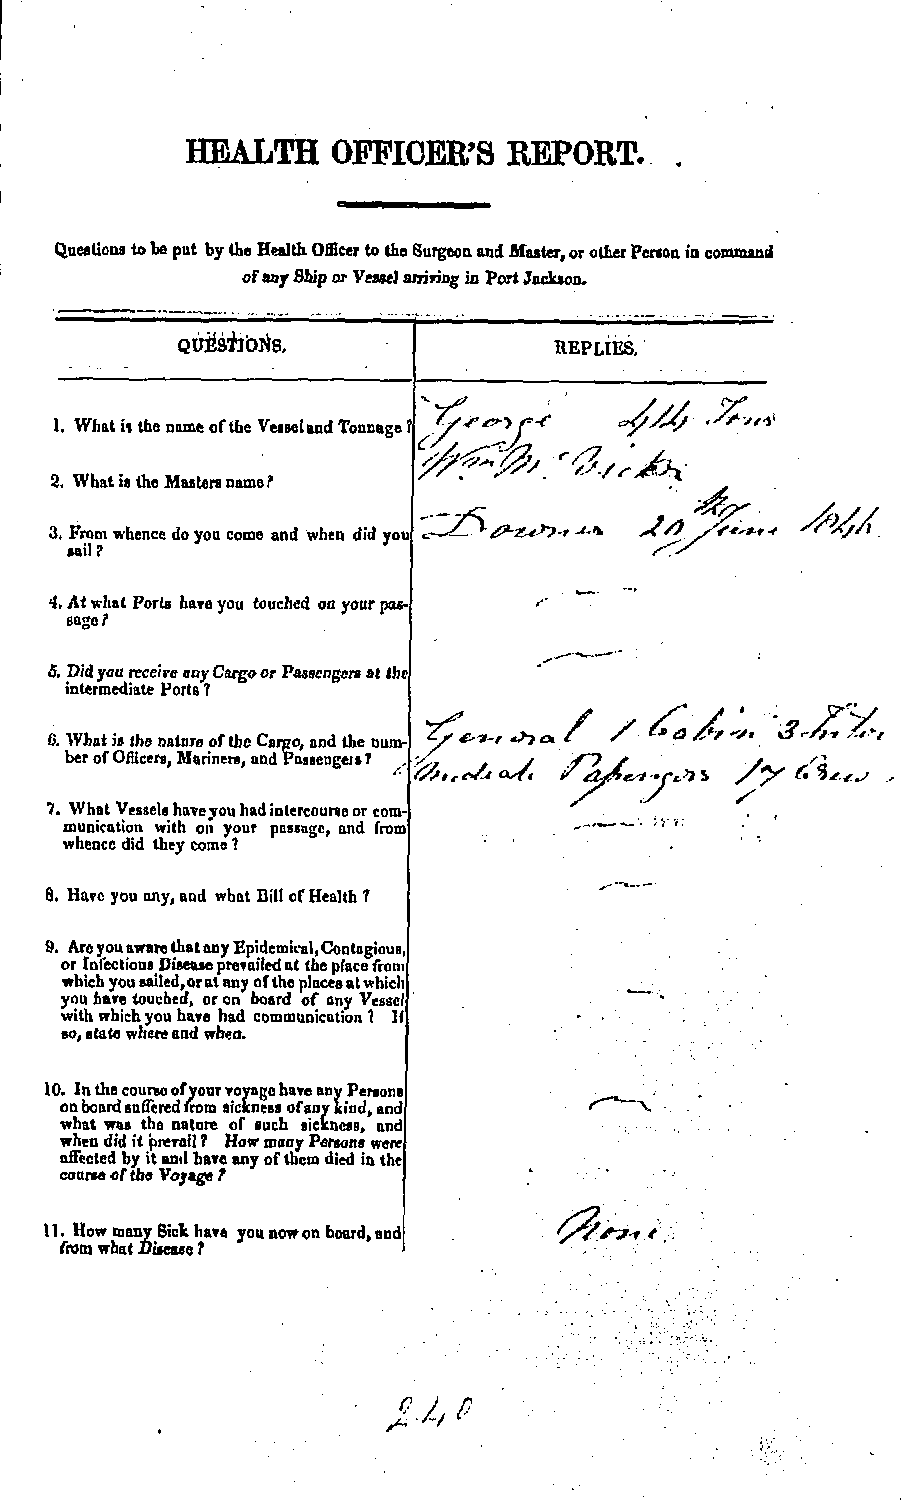 HEALTH OFFICER'S REPORT.
Questions to be put by the Health Officer to the Surgeon and Master, or other Person in command
of any Ship or Vessel arriving in Port Jackson.
QUESTIONS.
REPLIES.
1. What is the name of the Vessel and Tonnage?
George 414 Tons
2. What is the Masters name?
Wm Mc Vicker
3. From whence do you come and when did you
sail?
Downes 20th June 1846
4. At what Ports have you touched on your pas-
sage?
5. Did you receive any Cargo or Passengers at the
intermediate Ports?
6. What is the nature of the Cargo, and the num-
ber of Officers, Mariners, and Passengers?
General 1 Cabin 3 Inter
mediate Passengers 17 Crew
7. What Vessels have you had intercourse or com-
munication with on your passage, and from
whence did they come?
8. Have you any, and what Bill of Health?
9. Are you aware that any Epidemical, Contagious,
or Infectious Disease prevailed at the place from
which you sailed, or at any of the places at which
you have touched, or on board of any Vessel
with which you have had communication? If
so, state where and when.
10. In the course of your voyage have any Persons
on board suffered from sickness of any kind, and
what was the nature of such sickness, and
when did it prevail? How many Persons were
affected by it and have any of them died in the
course of the Voyage?
11. How many Sick have you now on board, and
from what Disease?
None
240